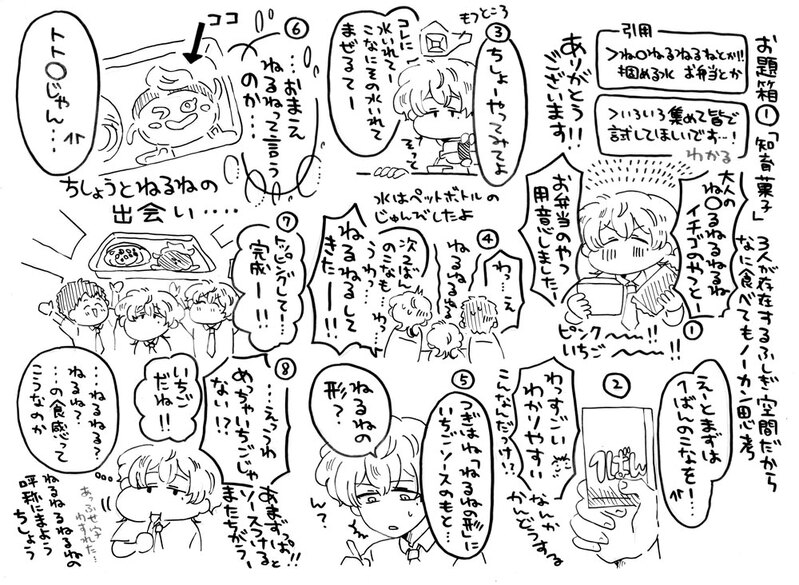 お題箱①「知育菓子」
3人が存在するふしぎ空間だから
なに食べてもノーカン思考
引用
>ね〇ねるねるねとか!!
掴める水 お弁当とか
>いろいろ集めて皆で
試してほしいです…!
わかる
ありがとう!!
ございます!!
大人の
ね〇るねるねるね
イチゴのやつと!
お弁当のやつ
用意しましたー!
ピンク
いちご
〜!!
〜!!
①
②
えーとまずは
1ばんのこなをー!
1ばん
わっすごい
わかりやすい
こんなんだっけ!?
なんか
かんどうする
③
もつところ
ちょーやってみてよ
コレに
水いれてー
こなにその水いれて
まぜるてー
そっ
水はペットボトルの
じゅんびでしたよ
④
わっ…え
ねるねる
ねるねるして
きたー!!
次2ばん
のこなも
うわっ
わっ
⑤
つぎはね「ねるねの形」に
いちごソースのもと…
ねるねの
形?
ん?
⑥
ココ
…おまえ
ねるねって言う
のか…
トト〇じゃん…
ちしょうとねるねの
出会い‥‥
⑦
トッピングして…
完成ー!!
⑧
…えっうわ
めっちゃいちごじゃ
ない!?
あまずいっぱ!!
ソースつけると
またちがうー
いちご
だね!!
…ねるねる?
ねるね?
…の食感って
こうなのか
あっふせ字
わすれた…
ねるねるねるねの
呼称にまよう
ちしょう